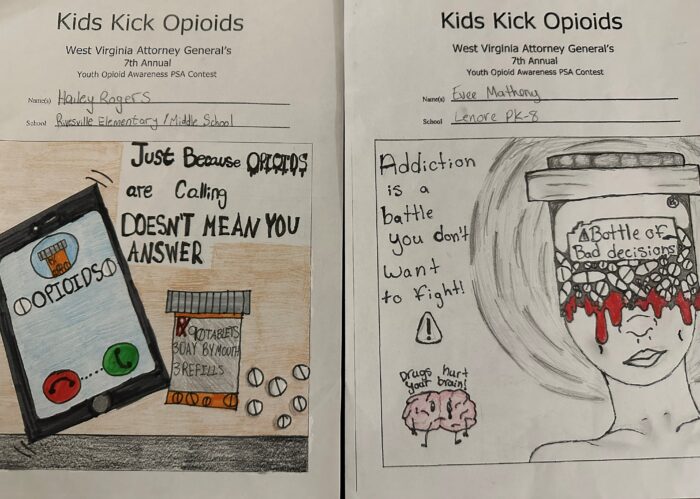 Kids Kick Opioids
West Virginia Attorney General's
7th Annual
Youth Opioid Awareness PSA Contest
Name(s) Hailey Rogers
School Rivesville Elementary / Middle School
Just Because OPIOIDS
are Calling
DOESN'T MEAN YOU
ANSWER
OPIOIDS
RX 90 TABLETS
3 DAY BY MOUTH
3 REFILLS
Kids Kick Opioids
West Virginia Attorney General's
7th Annual
Youth Opioid Awareness PSA Contest
Name(s) Evee Matheny
School Lenore PK-8
Addiction
is a
battle
you don't
want
to fight!
Drugs hurt
your brain!
®
Bottle of
Bad decisions